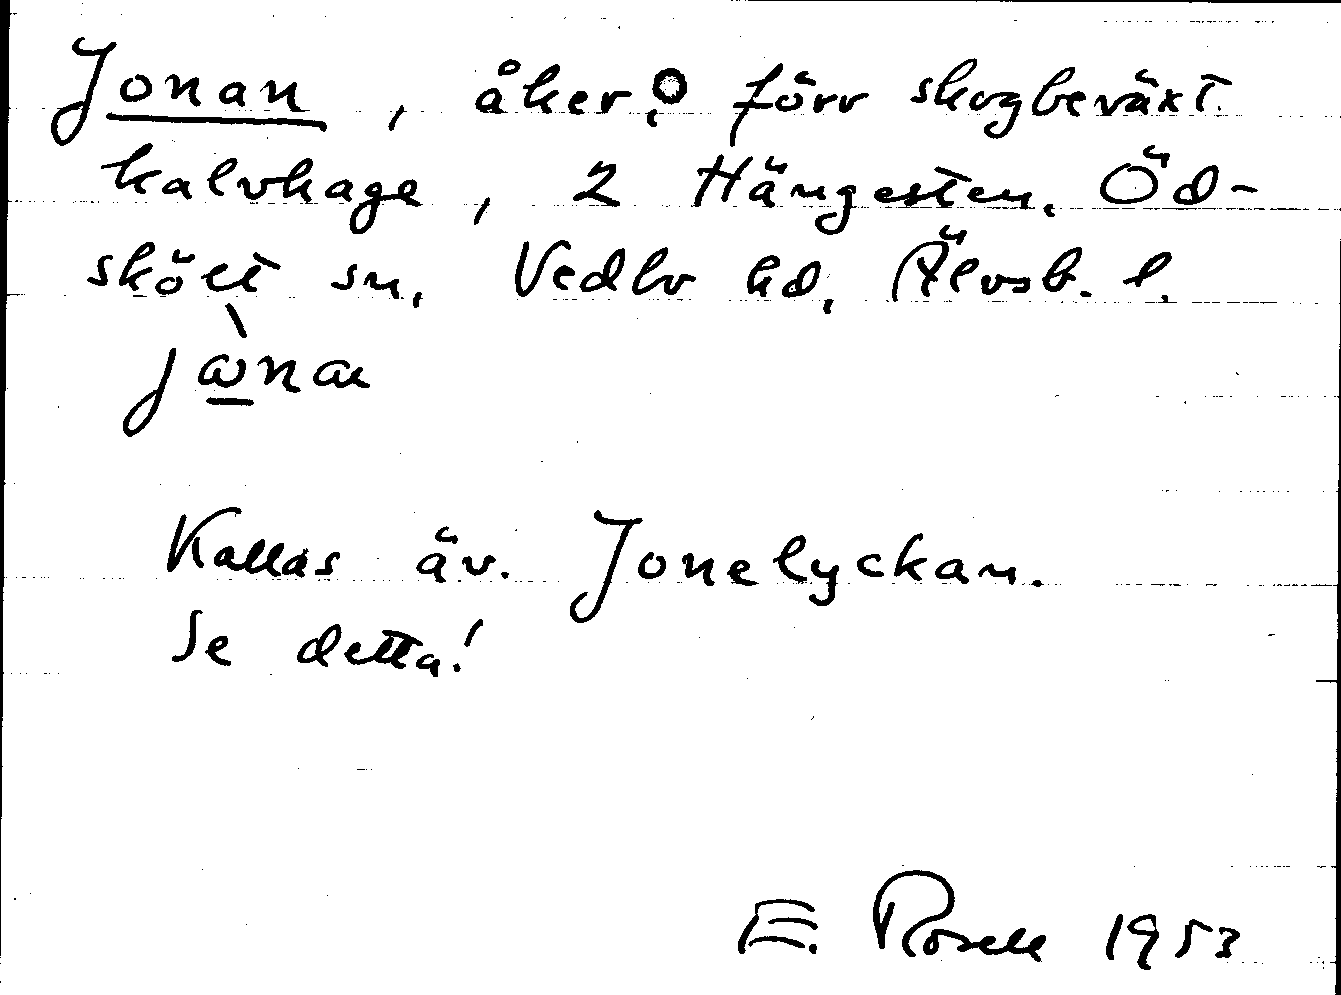 Jonan, åker, förr skogbeväxt
kalvhage, 2 Hängesten. Öd-
skölt sn, Vedbo hd, Älvsb. l.
Kallas äv. Jonelyckan.
Se detta!
E. Rosell 1953